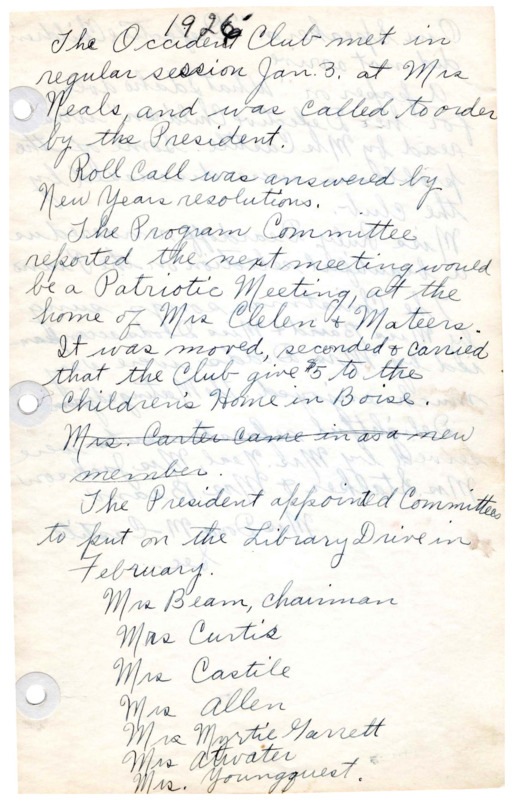 1926
The Occident Club met in
regular session Jan. 3. at Mrs
Neals, and was called to order
by the President.
Roll Call was answered by
New Years resolutions.
The Program Committee
reported the next meeting would
be a Patriotic Meeting, at the
home of Mrs Clelen & Mateers.
It was moved, seconded & carried
that the Club give $5 to the
Children's Home in Boise.
Mrs. Carter came in as a new
member.
The President appointed Committees
to put on the Library Drive in
February.
Mrs Beam, chairman
Mrs Curtis
Mrs Castile
Mrs Allen
Mrs Myrtie Garrett
Mrs Atwater
Mrs. Youngquest.